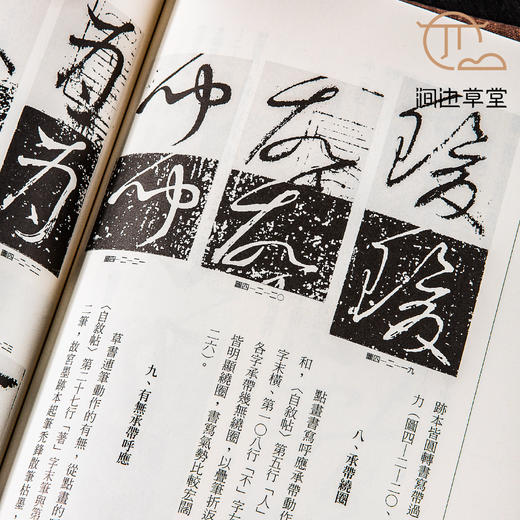 涧边草堂
圖四-二-一九
圖四-二-二〇
圖四-二-二一
圖四-二-二二
跡本皆圓轉書寫帶過
力（圖四-二-二〇、
八、承帶繞圈
點畫書寫呼應承帶動作
和，〈自敘帖〉第五行「人」
字末橫、第一〇八行「不」字右
各字承帶幾無繞圈，以疊筆折返
皆明顯繞圈，書寫氣勢比較宏闊
二六）。
九、有無承帶呼應
草書連筆動作的有無，從點畫的
〈自敘帖〉第二十七行「著」字末筆與第
二筆，故宮墨跡本起筆禿鋒散筆枯墨，